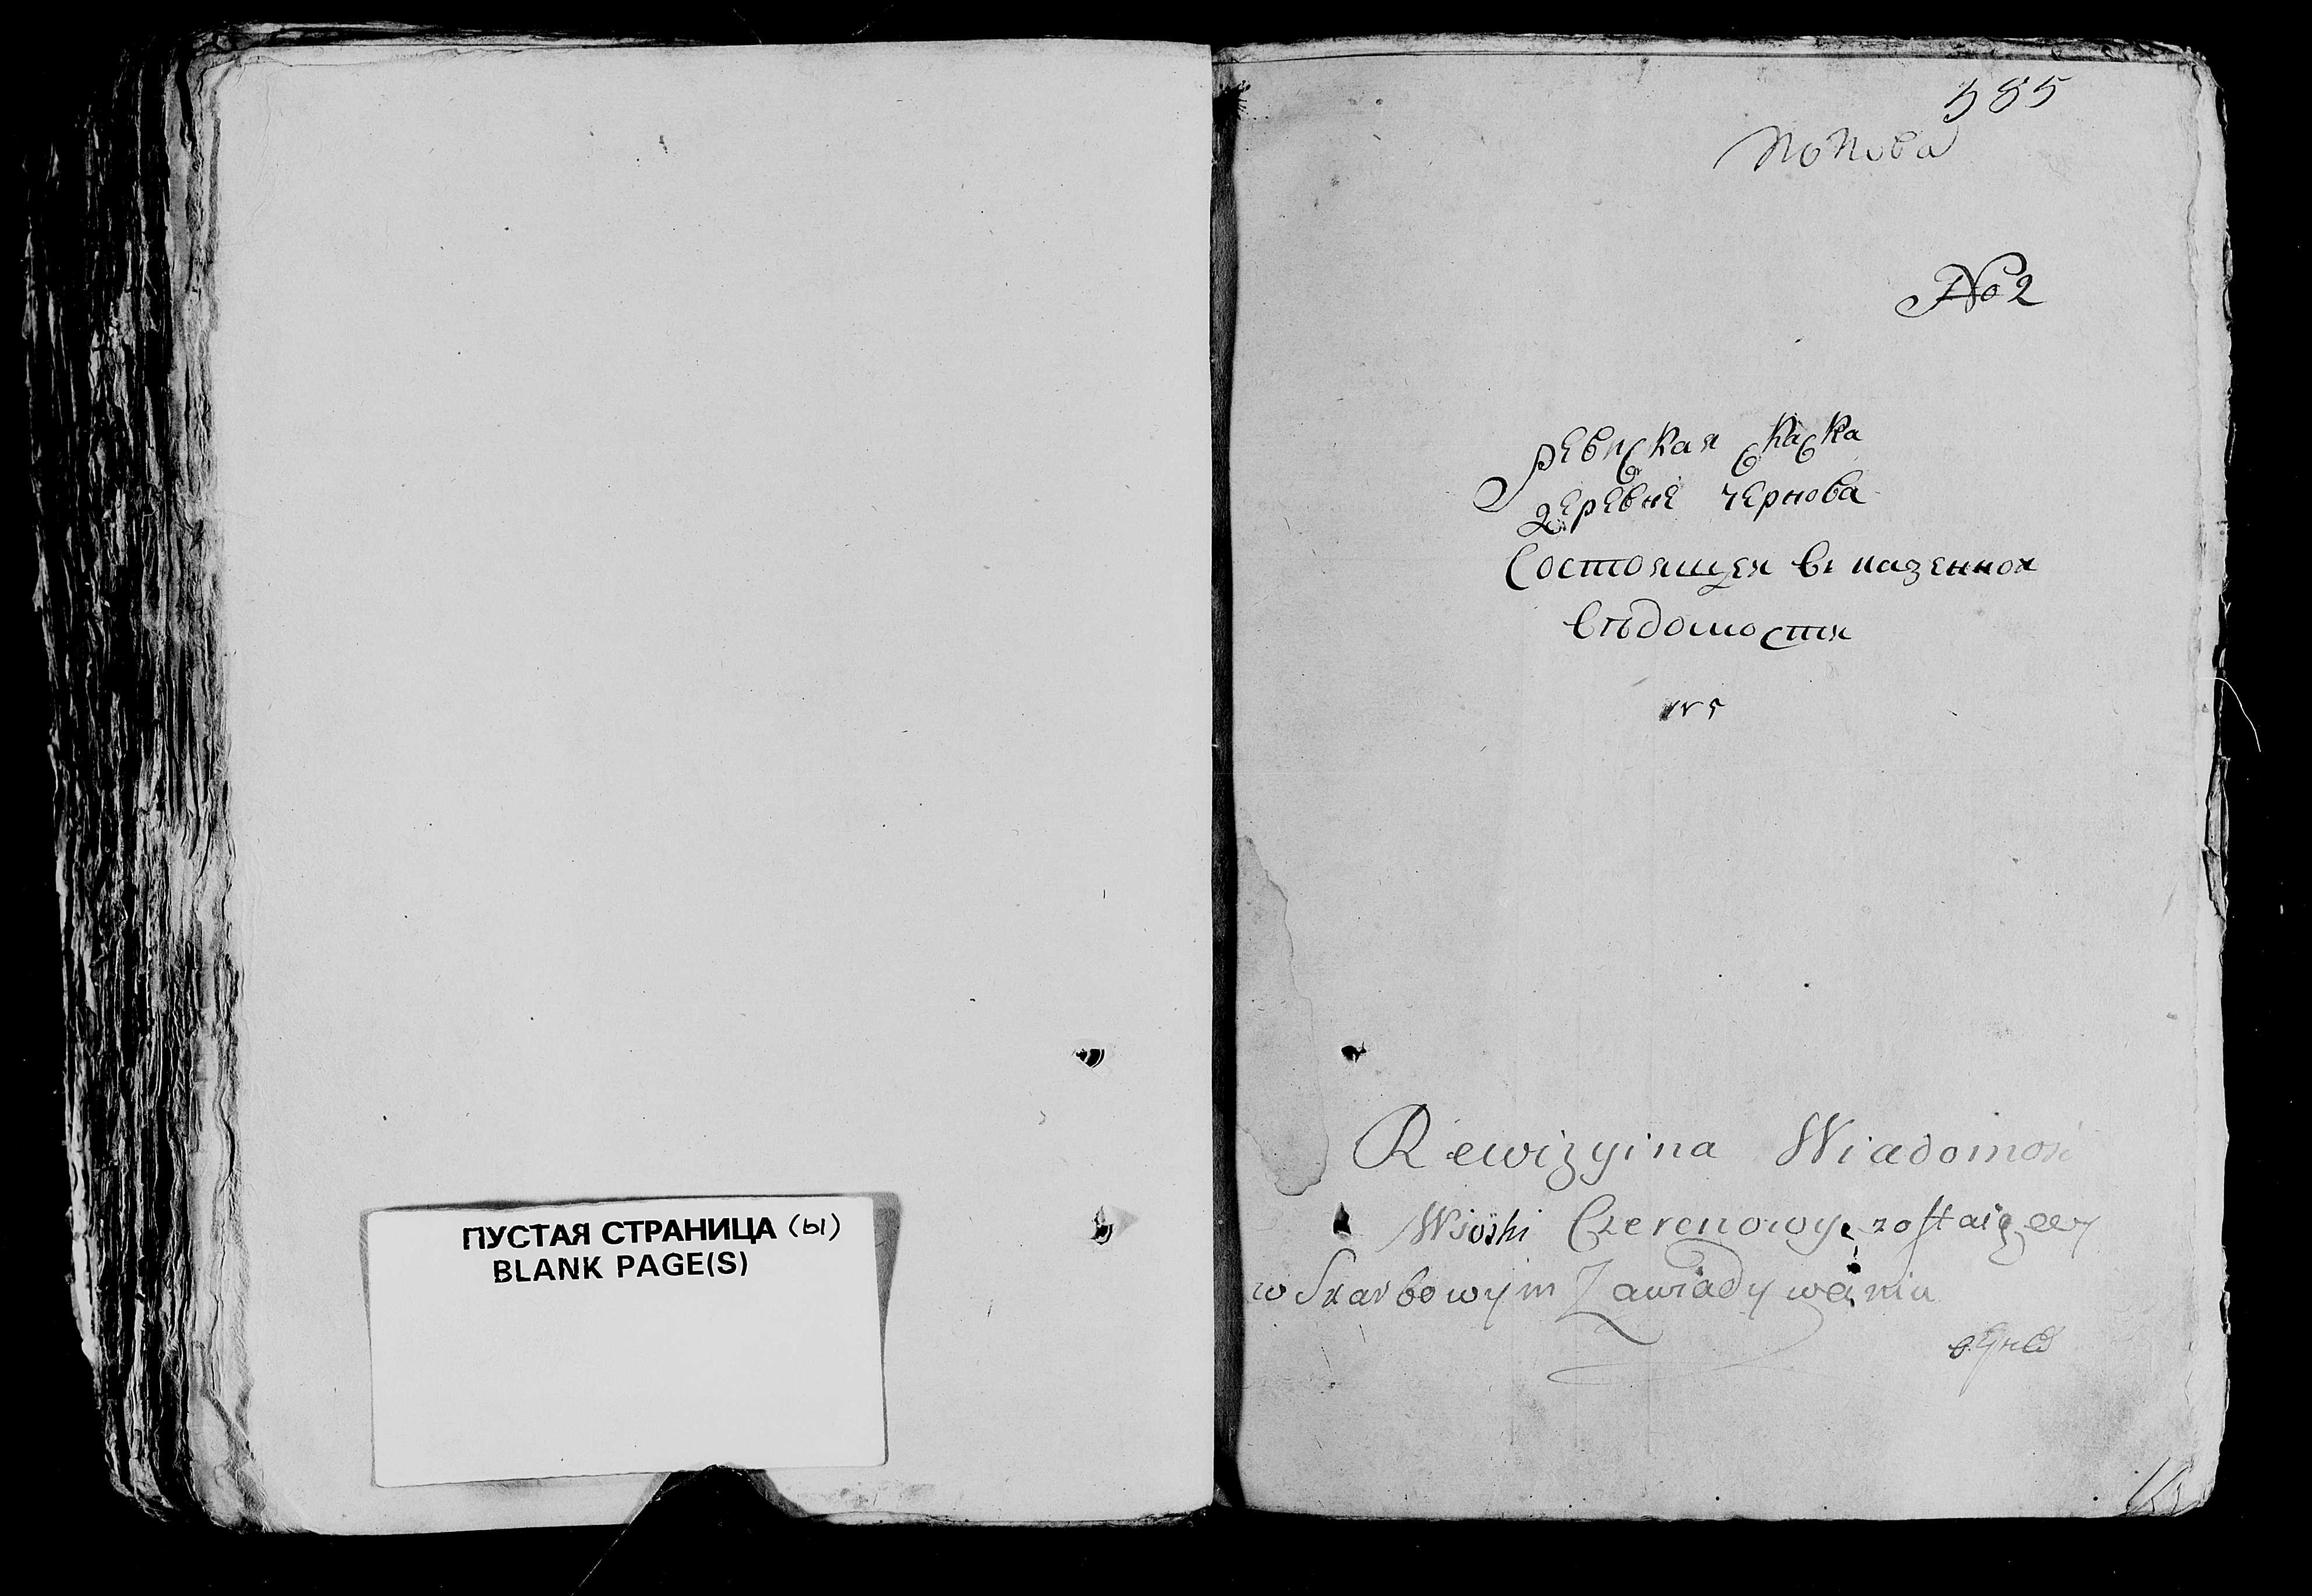 ПУСТАЯ СТРАНИЦА (ы)
BLANK PAGE(S)
585
Попова
No 2
ревиская скаска
деревне чернова
Состоящея вь казенной
вѣдомостя
Rewizyina Wiadomość
Wioski Czerenowy zostaiącey
w Skarbowym Zawiadywaniu